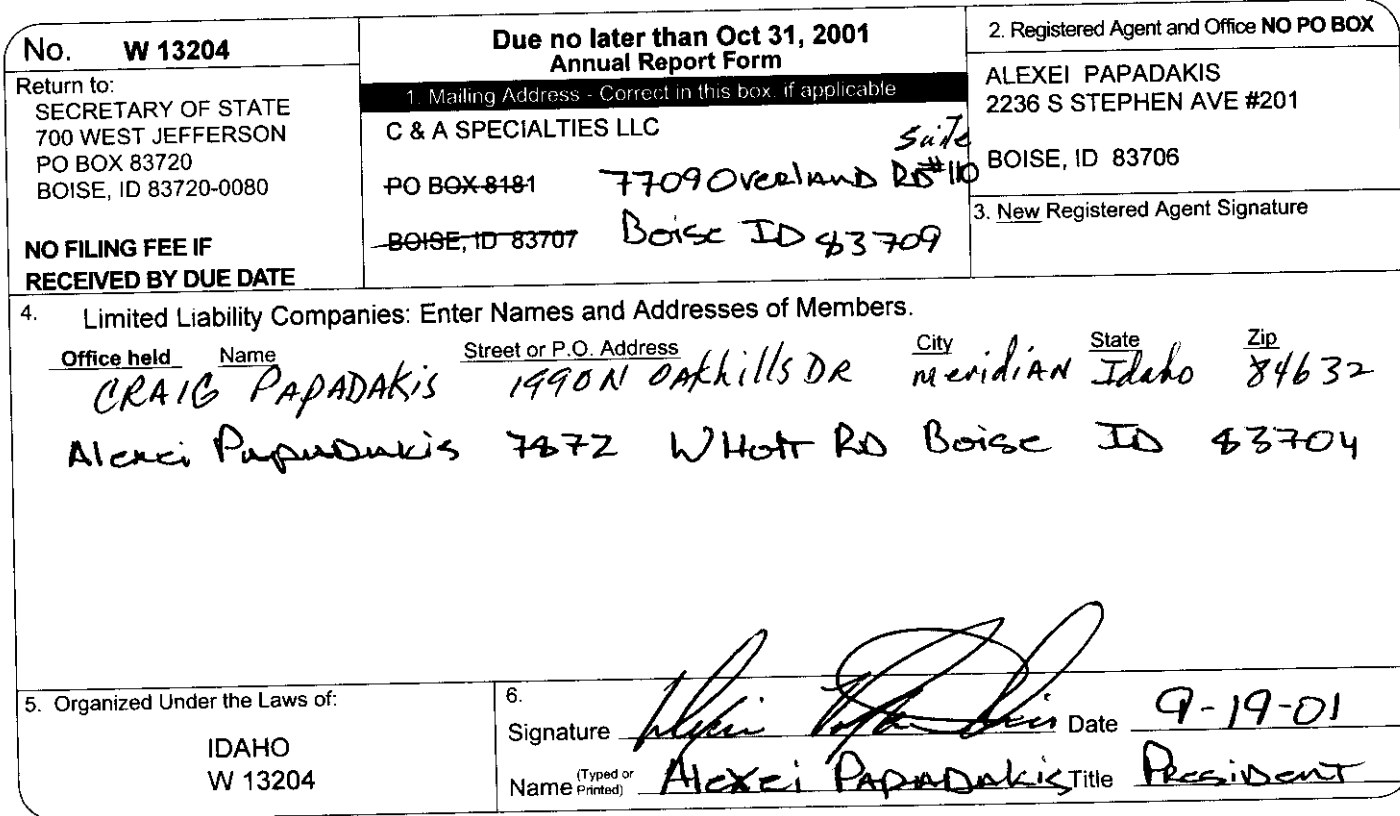 No. W 13204
Return to:
SECRETARY OF STATE
700 WEST JEFFERSON
PO BOX 83720
BOISE, ID 83720-0080
NO FILING FEE IF
RECEIVED BY DUE DATE
Due no later than Oct 31, 2001
Annual Report Form
1. Mailing Address - Correct in this box. if applicable
C & A SPECIALTIES LLC
Suite
PO BOX 8181 7709 Overland RD #110
BOISE, ID 83707 Boise ID 83709
2. Registered Agent and Office NO PO BOX
ALEXEI PAPADAKIS
2236 S STEPHEN AVE #201
BOISE, ID 83706
3. New Registered Agent Signature
4. Limited Liability Companies: Enter Names and Addresses of Members.
Office held Name Street or P.O. Address City State Zip
CRAIG PAPADAKIS 1990 N OAKhills DR meridiAN Idaho 84632
Alexei Papadakis 7872 W Hott RD Boise ID 83704
5. Organized Under the Laws of:
IDAHO
W 13204
6.
Signature Date 9-19-01
Name (Typed or Printed) Alexei Papadakis Title President